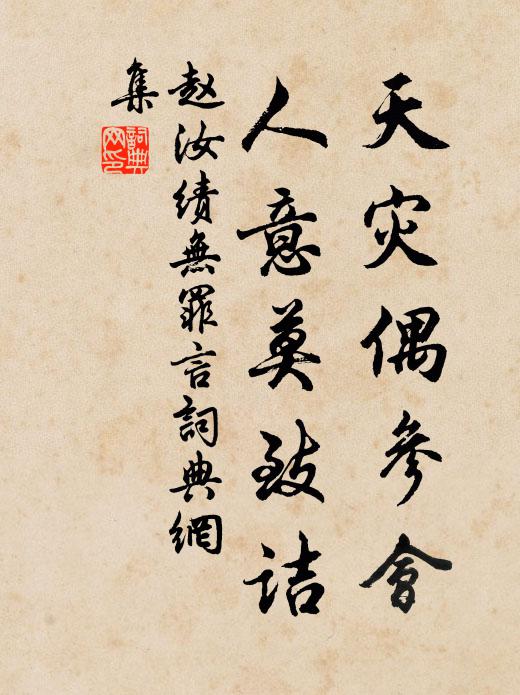 天灾偶參會
人意莫致诘
赵汝绩無罪言詞典網
集
詞典网印